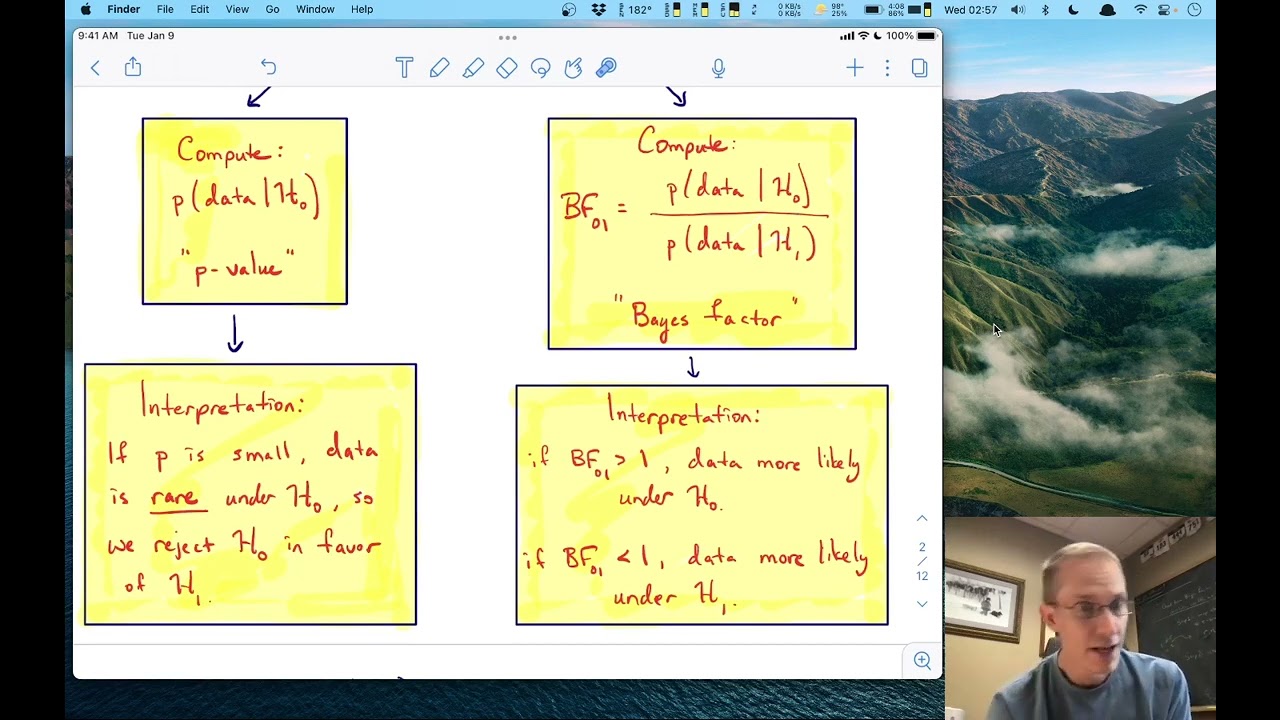 Finder File Edit View Go Window Help
182° 0 KB/s 0 KB/s 98° 25% 4:08 86% Wed 02:57
9:41 AM Tue Jan 9
100%
Compute:
p(data | H₀)
"p-value"
Interpretation:
If p is small, data
is rare under H₀, so
we reject H₀ in favor
of H₁.
Compute:
BF₀₁ = p(data | H₀)
p(data | H₁)
"Bayes factor"
Interpretation:
if BF₀₁ > 1, data more likely
under H₀.
if BF₀₁ < 1, data more likely
under H₁.
2
/
12